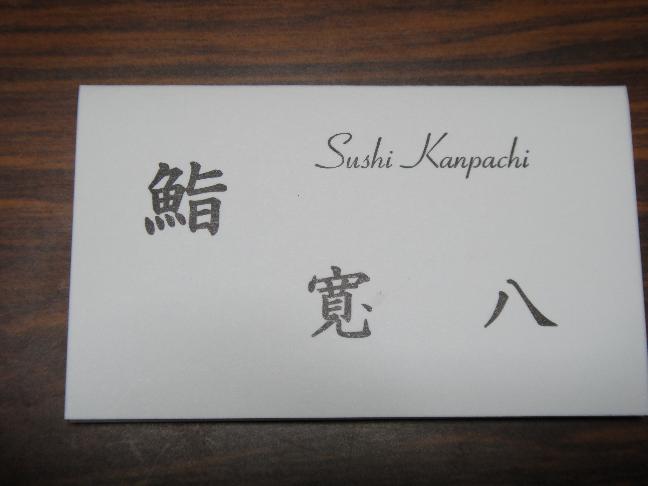 Sushi Kanpachi
鮨
寬八